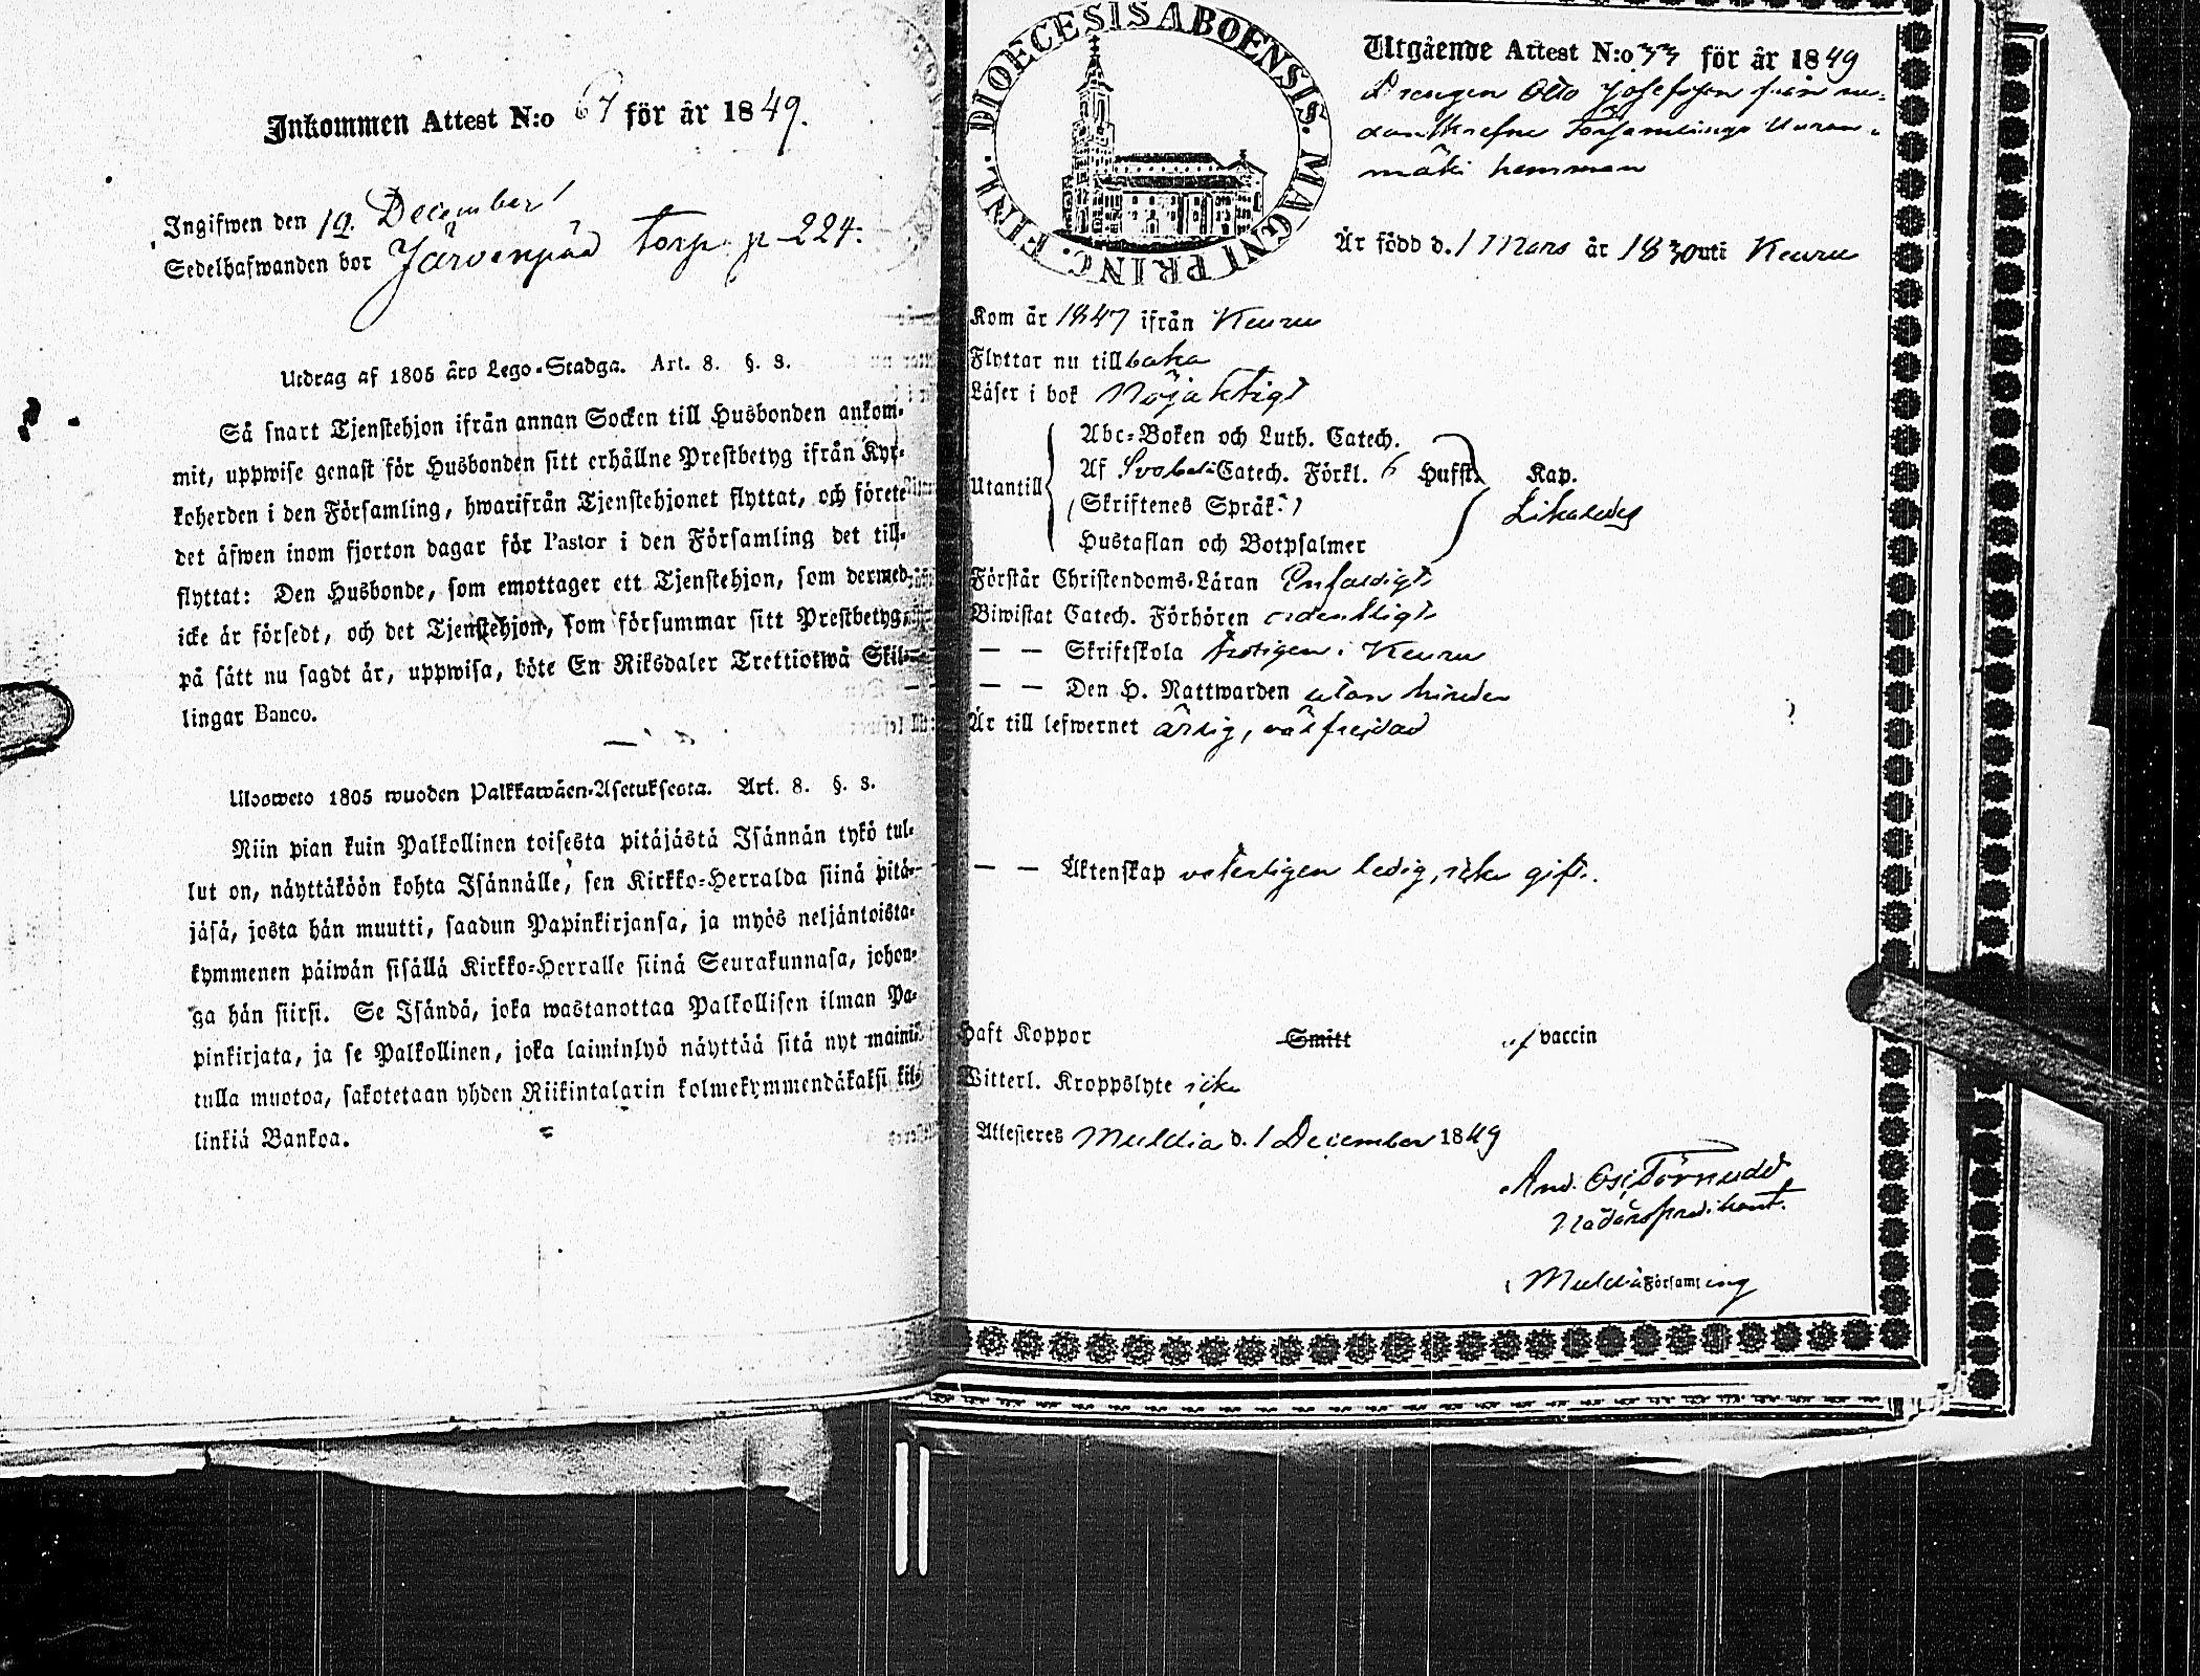 Inkommen Attest N:o 67 för år 1849.
Ingifwen den 19. December
Sedelhafwanden bor Järvenpää torp. p 224.
Utdrag af 1805 års Lego-Stadga. Art. 8. §. 3.
Så snart Tjenstehjon ifrån annan Socken till Husbonden ankom-
mit, uppwise genast för Husbonden sitt erhållne Prestbetyg ifrån Kyr-
koherden i den Församling, hwarifrån Tjenstehjonet flyttat, och förete
det äfwen inom fjorton dagar för Pastor i den Församling det till-
flyttat: Den Husbonde, som emottager ett Tjenstehjon, som dermed
icke är försedt, och det Tjenstehjon, som försummar sitt Prestbetyg,
på sätt nu sagdt är, uppwisa, böte En Riksdaler Trettiotwå Skil-
lingar Banco.
Ulosweto 1805 wuoden Palkkawäen-Asetuksesta. Art. 8. §. 3.
Niin pian kuin Palkollinen toisesta pitäjästä Isännän tykö tul-
lut on, näyttäköön kohta Isännälle, sen Kirkko-Herralda siinä pitä-
jäsä, josta hän muutti, saadun Papinkirjansa, ja myös neljäntoista-
kymmenen päiwän sisällä Kirkko-Herralle siinä Seurakunnasa, johon-
ga hän siirsi. Se Isändä, joka wastanottaa Palkollisen ilman Pa-
pinkirjata, ja se Palkollinen, joka laiminlyö näyttää sitä nyt maini-
tulla muotoa, sakotetaan yhden Riikintalarin kolmekymmendäkaksi kil-
linkiä Bankoa.
DIOECESIS ABOENSIS. MAGNI PRINC. FINL.
Utgående Attest N:o 33 för år 1849
Drengen Otto Josefsson från ne-
danskrefne Församlings Uuran-
mäki hemman
Är född d. 1 Mars år 1830 uti Keuru
Kom år 1847 ifrån Keuru
Flyttar nu tillbaka
Läser i bok Nöjaktigt
Utantill
Abc-Boken och Luth. Catech.
Af Svebelii Catech. Förkl. 6 Hufst. Kap.
(Skriftenes Språk)
Likaledes
Hustaflan och Botpsalmer
Förstår Christendoms-Läran Enfaldigt
Biwistat Catech. Förhören ordentligt
— — Skriftskola troligen i Keuru
— — Den H. Nattwarden utan hinder
Är till lefwernet ärlig, välfrejdad
— — Äktenskap veterligen ledig, icke gift.
Haft Koppor Smitt af vaccin
Witterl. Kroppslyte icke
Attesteres Muldia d. 1 December 1849
And. Törnudd
Nådårspredikant.
i Muldia Församling